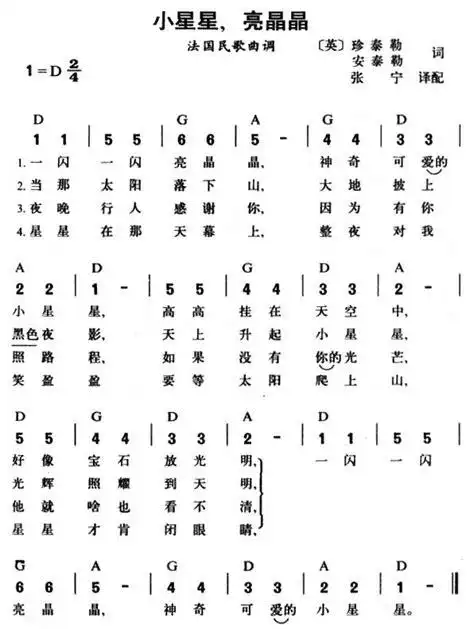 小星星，亮晶晶
法国民歌曲调
〔英〕珍泰勒
安泰勒 词
张宁 译配
1=D 2/4
D G A G D
1 1 | 5 5 | 6 6 | 5 - | 4 4 | 3 3 |
1.一闪 一闪 亮晶 晶, 神奇 可爱的
2.当那 太阳 落下 山, 大地 披上
3.夜晚 行人 感谢 你, 因为 有你
4.星星 在那 天幕 上, 整夜 对我
A D G D A
2 2 | 1 - | 5 5 | 4 4 | 3 3 | 2 - |
小星 星, 高高 挂在 天空 中,
黑色夜 影, 天上 升起 小星 星,
照路 程, 如果 没有 你的光 芒,
笑盈 盈 要等 太阳 爬上 山,
D G D A D
5 5 | 4 4 | 3 3 | 2 - | 1 1 | 5 5 |
好像 宝石 放光 明, 一闪 一闪
光辉 照耀 到天 明,
他就 啥也 看不 清,
星星 才肯 闭眼 睛,
G A G D A D
6 6 | 5 - | 4 4 | 3 3 | 2 2 | 1 - ‖
亮晶 晶, 神奇 可爱的 小星 星。